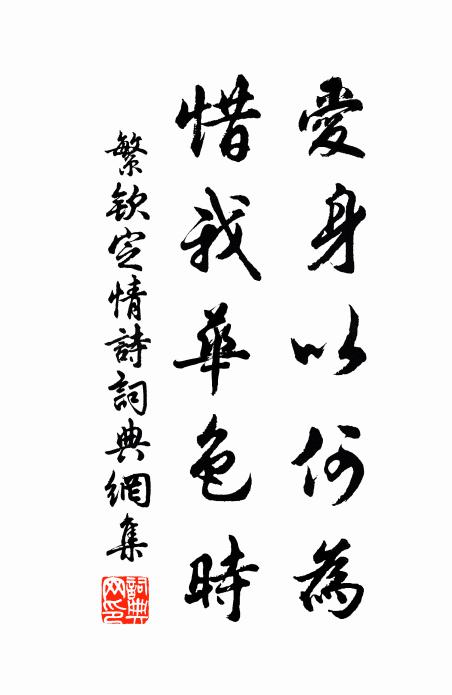 愛身以何為
惜我華色時
繁欽定情詩詞典網集